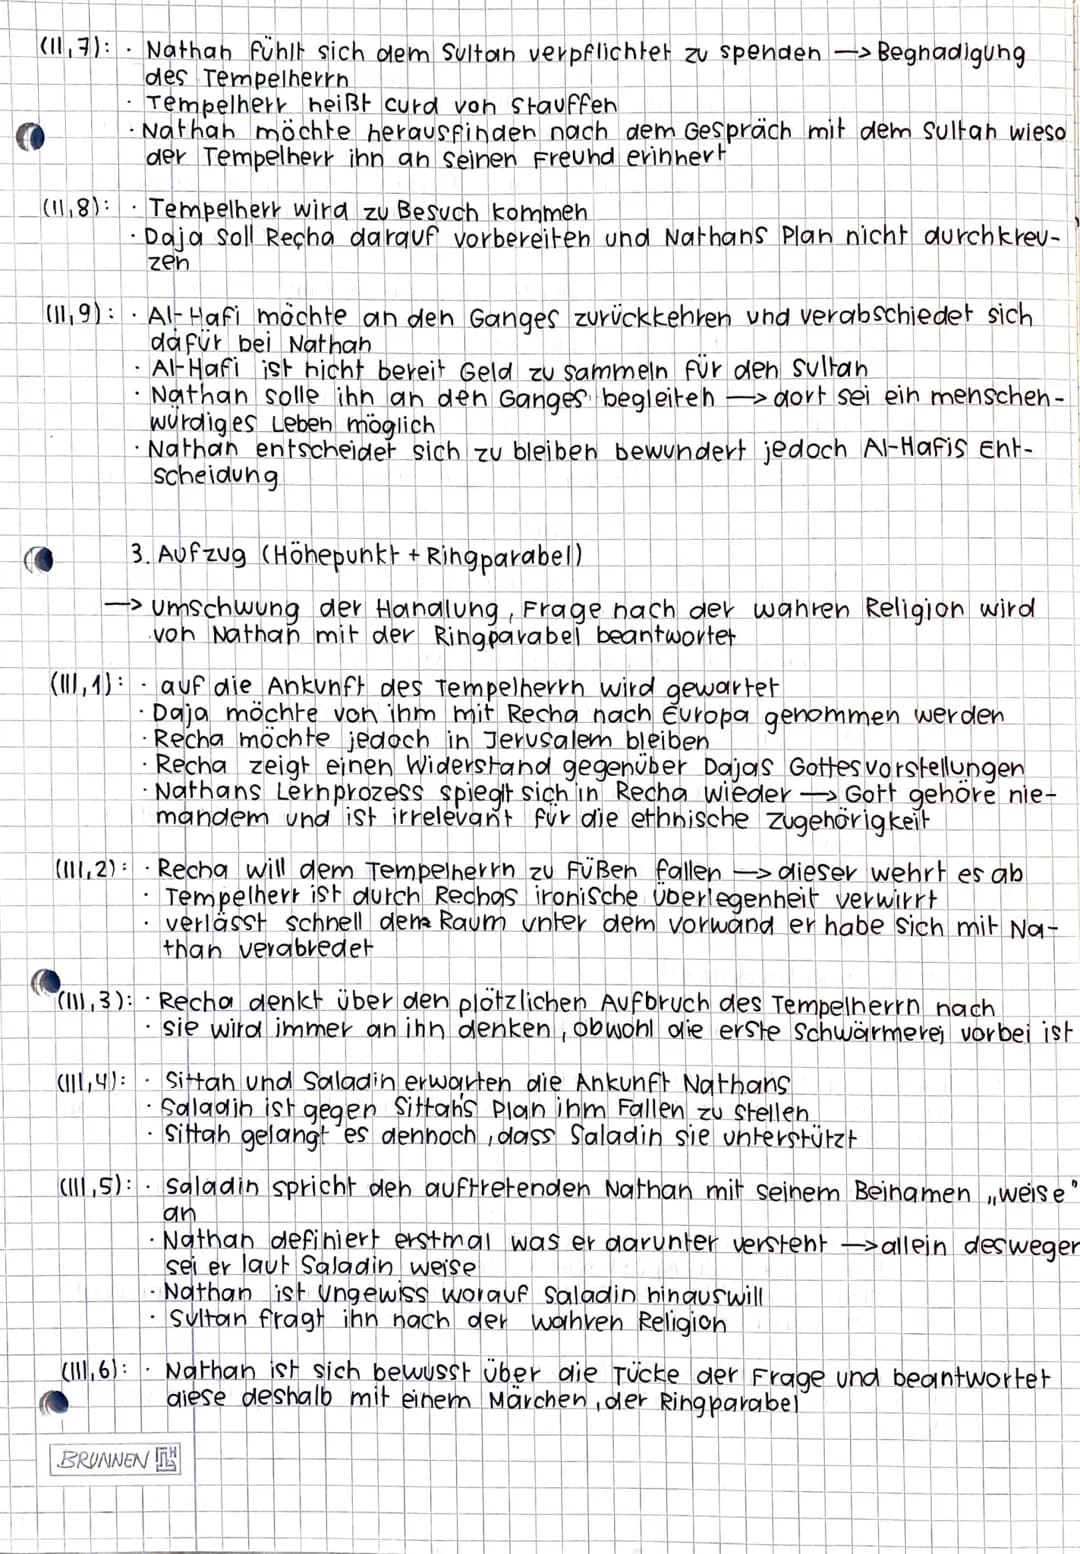 (II,7): · Nathan fühlt sich dem Sultan verpflichtet zu spenden → Begnadigung
des Tempelherrn
· Tempelherr heißt curd von Stauffen
· Nathan möchte herausfinden nach dem Gespräch mit dem Sultan wieso
der Tempelherr ihn an seinen Freund erinnert
(II,8): · Tempelherr wird zu Besuch kommen
· Daja soll Recha darauf vorbereiten und Nathans Plan nicht durchkreu-
zen
(II,9): · Al-Hafi möchte an den Ganges zurückkehren und verabschiedet sich
dafür bei Nathan
· Al-Hafi ist nicht bereit Geld zu sammeln für den Sultan
· Nathan solle ihn an den Ganges begleiten → dort sei ein menschen-
würdiges Leben möglich
· Nathan entscheidet sich zu bleiben bewundert jedoch Al-Hafis Ent-
scheidung
3. Aufzug (Höhepunkt + Ringparabel)
→ Umschwung der Handlung, Frage nach der wahren Religion wird
von Nathan mit der Ringparabel beantwortet
(III,1): · auf die Ankunft des Tempelherrn wird gewartet
· Daja möchte von ihm mit Recha nach Europa genommen werden
· Recha möchte jedoch in Jerusalem bleiben
· Recha zeigt einen Widerstand gegenüber Dajas Gottesvorstellungen
· Nathans Lernprozess spieglt sich in Recha wieder → Gott gehöre nie-
mandem und ist irrelevant für die ethnische Zugehörigkeit
(III,2): · Recha will dem Tempelherrn zu Füßen fallen → dieser wehrt es ab
· Tempelherr ist durch Rechas ironische Überlegenheit verwirrt
· verlässt schnell den Raum unter dem Vorwand er habe sich mit Na-
than verabredet
(III,3): · Recha denkt über den plötzlichen Aufbruch des Tempelherrn nach
· sie wird immer an ihn denken, obwohl die erste Schwärmerei vorbei ist
(III,4): · Sittah und Saladin erwarten die Ankunft Nathans
· Saladin ist gegen Sittah's Plan ihm Fallen zu stellen
· Sittah gelangt es dennoch, dass Saladin sie unterstützt
(III,5): · Saladin spricht den auftretenden Nathan mit seinem Beinamen „weise"
an
· Nathan definiert erstmal was er darunter versteht → allein deswegen
sei er laut Saladin weise
· Nathan ist ungewiss worauf Saladin hinauswill
· Sultan fragt ihn nach der wahren Religion
(III,6): · Nathan ist sich bewusst über die Tücke der Frage und beantwortet
diese deshalb mit einem Märchen, der Ringparabel
BRUNNEN